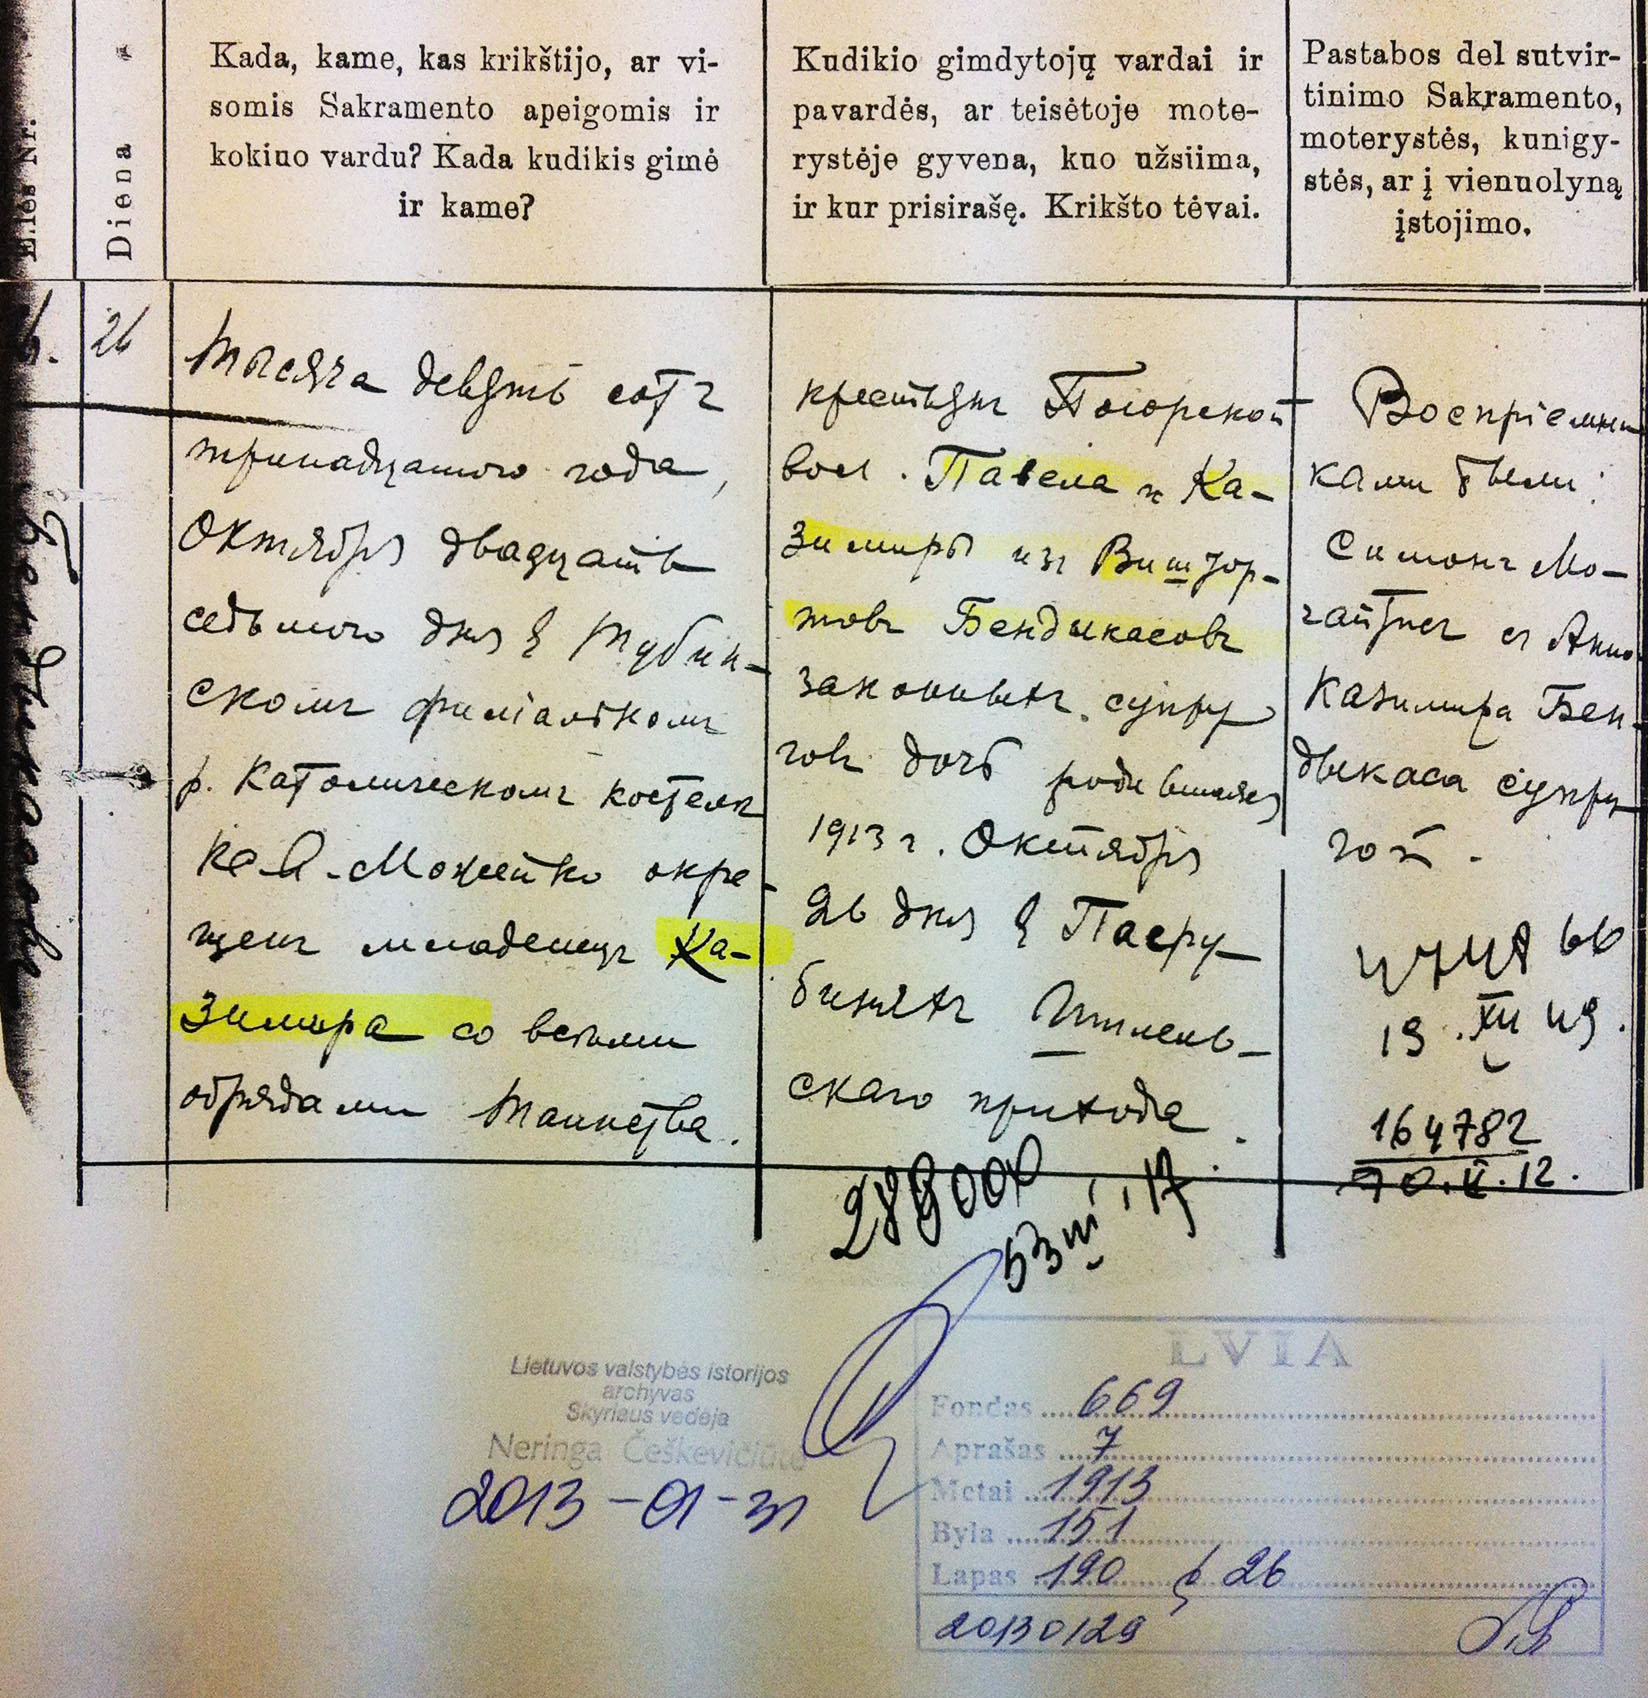 E.lės Nr.
Diena
Kada, kame, kas krikštijo, ar vi-
somis Sakramento apeigomis ir
kokiuo vardu? Kada kudikis gimė
ir kame?
Kudikio gimdytojų vardai ir
pavardės, ar teisėtoje mote-
rystėje gyvena, kuo užsiima,
ir kur prisirašę. Krikšto tėvai.
Pastabos del sutvir-
tinimo Sakramento,
moterystės, kunigy-
stės, ar į vienuolyną
įstojimo.
26
Тысяча девять сотъ
тринадцатого года,
Октября двадцать
седьмого дня въ Тубин-
скомъ филіальномъ
р. Католическомъ костелѣ
Кс. А. Можейко окре-
щенъ младенецъ Ка-
зимира со всѣми
обрядами Таинства.
крестьянъ Погорской
вол. Павела и Ка-
зимиры изъ Виштор-
товъ Бендыкасовъ
законныхъ супру
говъ дочь родившаяся
1913 г. Октября
26 дня въ Пасру
биняхъ Шилель-
скаго прихода.
Воспріемни
ками были:
Симонъ Мо-
съ Анно
Казимира Бен-
дыкаса супру
гой.
66
19.XII 49.
164782
12.
Lietuvos valstybės istorijos
archyvas
Skyriaus vedėja
Neringa Češkevičiūtė
2013-01-31
LVIA
Fondas 669
Aprašas 7
Metai 1913
Byla 151
Lapas 190 26
20130129